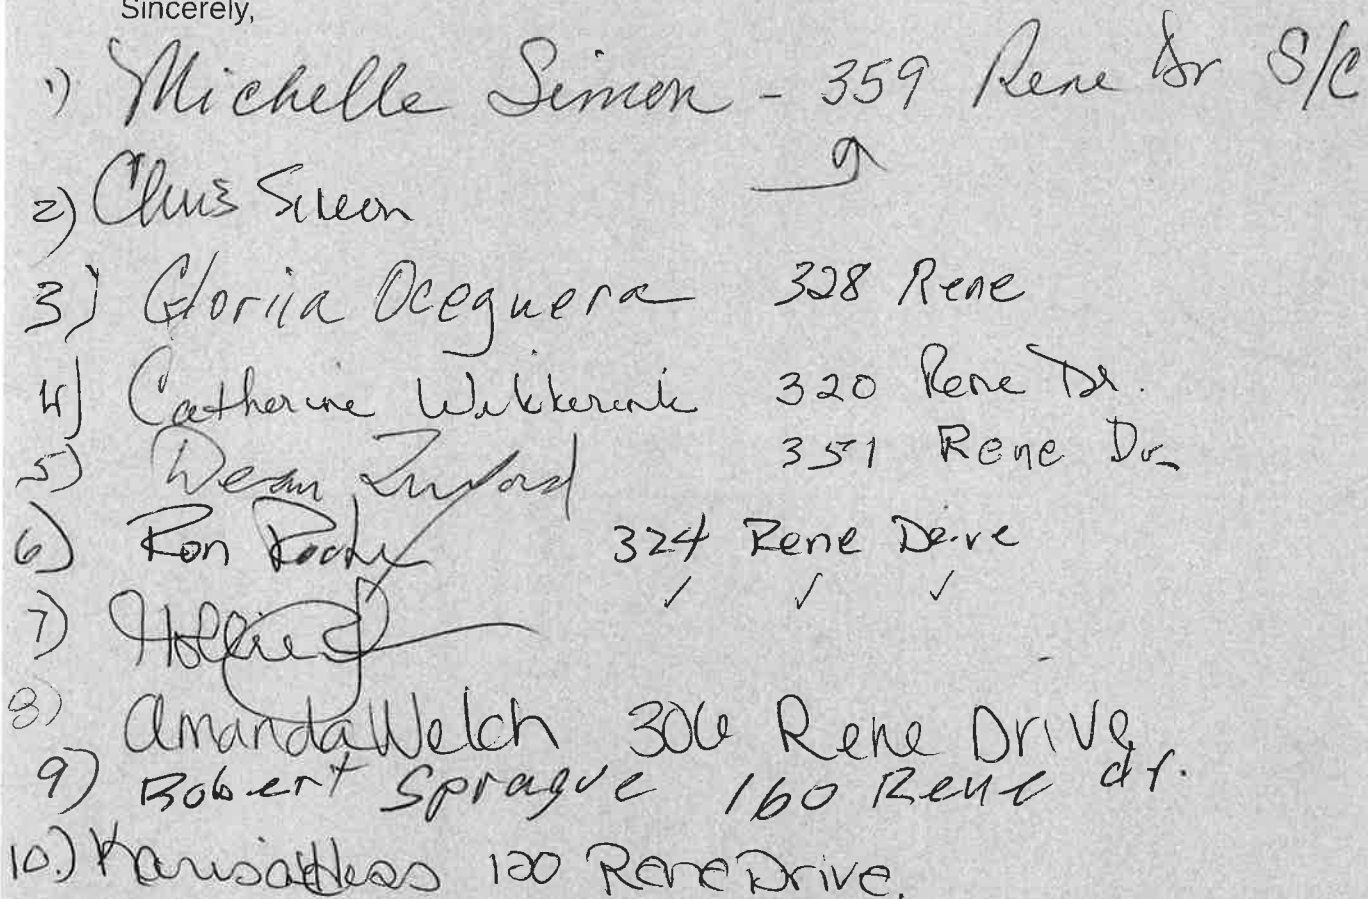 Sincerely,
1) Michelle Simon - 359 Rene Dr S/C
2) Chris Simon
3) Gloriia Oceguera 328 Rene
4) Catherine Wikkerink 320 Rene Dr.
5) Dean 351 Rene Dr
6) Ron 324 Rene Drive
7) Hollie
8) Amanda Welch 306 Rene Drive
9) Robert Sprague 160 Rene dr.
10.) 120 Rene Drive.